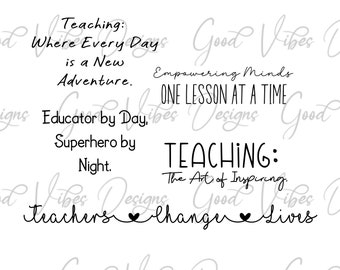 Teaching:
Where Every Day
is a New
Adventure.
Empowering Minds
ONE LESSON AT A TIME
Educator by Day,
Superhero by
Night.
TEACHING:
The Art of Inspiring.
Teachers Change Lives
Good Vibes Designs
Good Vibes Designs
Good Vibes Designs